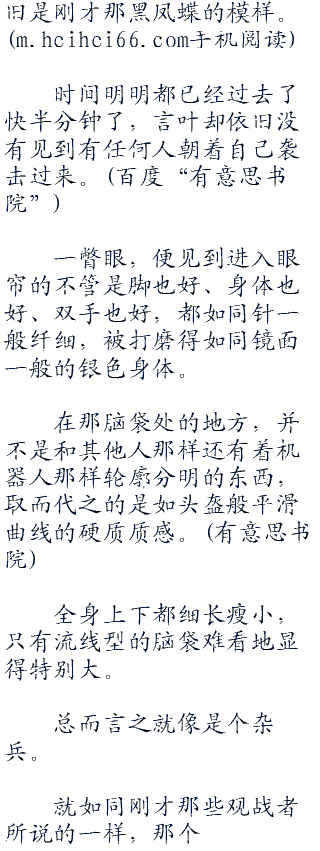 旧是刚才那黑凤蝶的模样。
(m.hcihci66.com手机阅读)
时间明明都已经过去了
快半分钟了，言叶却依旧没
有见到有任何人朝着自己袭
击过来。(百度“有意思书
院”)
一瞥眼，便见到进入眼
帘的不管是脚也好、身体也
好、双手也好，都如同针一
般纤细，被打磨得如同镜面
一般的银色身体。
在那脑袋处的地方，并
不是和其他人那样还有着机
器人那样轮廓分明的东西，
取而代之的是如头盔般平滑
曲线的硬质质感。(有意思书
院)
全身上下都细长瘦小，
只有流线型的脑袋难看地显
得特别大。
总而言之就像是个杂
兵。
就如同刚才那些观战者
所说的一样，那个